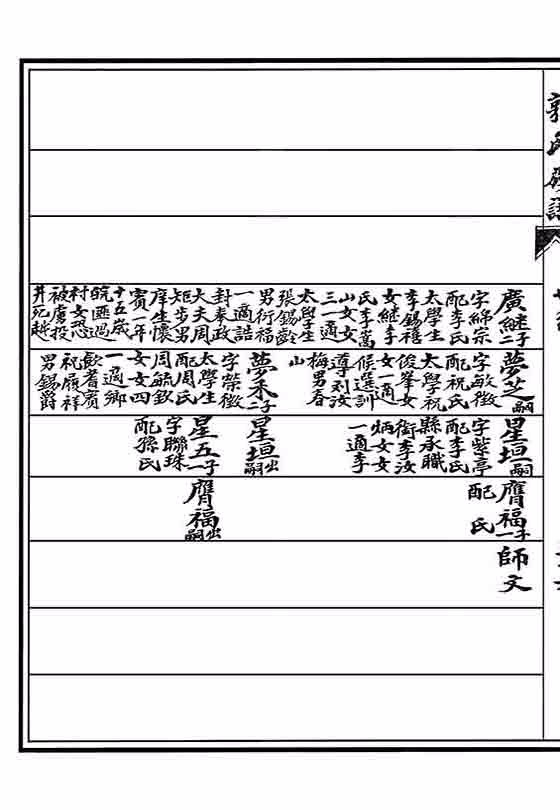 廣継二子
字綿宗
配李氏
太學生
李錫禧
女継李
氏李嵩
山女女
三一適
太學生
張錫齡
男衍福
一適誥
封奉政
大夫周
矩步男
庠生懷
賓一年
十五歲
皖匪過
村女恐
被虜投
井死越
夢芝嗣
字敏徵
配祝氏
太學祝
俊峯女
女一適
候選訓
導刘汝
梅男春
山
夢禾二子
字榮徵
太學生
配周氏
周毓欽
女女四
一適鄉
飲耆賓
祝履祥
男錫爵
星垣嗣
字紫亭
配李氏
縣丞職
銜李汝
炳女女
一適李
星垣出嗣
星五一子
字聯珠
配孫氏
膺福一子
配 氏
膺福出嗣
師文